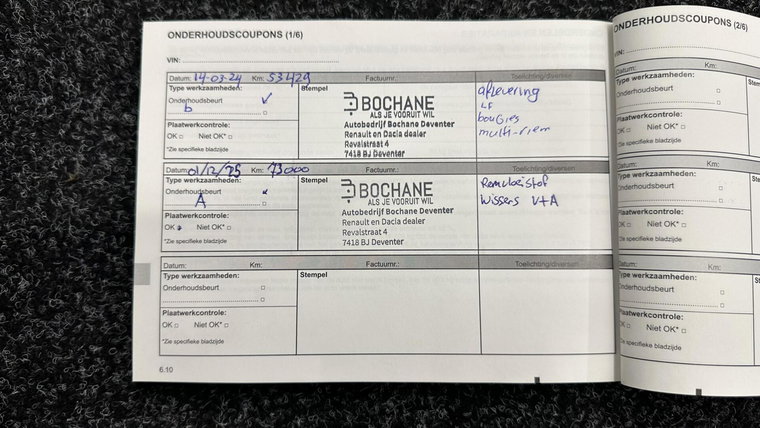 ONDERHOUDSCOUPONS (1/6)
VIN:
Datum: 14-03-24 Km: 53429 Factuurnr.: Toelichting/diversen
Type werkzaamheden:
Onderhoudsbeurt
b
Plaatwerkcontrole:
OK Niet OK*
*Zie specifieke bladzijde
Stempel
BOCHANE
ALS JE VOORUIT WIL
Autobedrijf Bochane Deventer
Renault en Dacia dealer
Revalstraat 4
7418 BJ Deventer
aflevering
LF
bougies
multi-riem
Datum: 01/12/25 Km: 73000 Factuurnr.: Toelichting/diversen
Type werkzaamheden:
Onderhoudsbeurt
A
Plaatwerkcontrole:
OK Niet OK*
*Zie specifieke bladzijde
Stempel
BOCHANE
ALS JE VOORUIT WIL
Autobedrijf Bochane Deventer
Renault en Dacia dealer
Revalstraat 4
7418 BJ Deventer
Remvloeistof
Wissers V+A
Datum: Km: Factuurnr.: Toelichting/diversen
Type werkzaamheden:
Onderhoudsbeurt
Plaatwerkcontrole:
OK Niet OK*
*Zie specifieke bladzijde
Stempel
6.10
ONDERHOUDSCOUPONS (2/6)
VIN:
Datum: Km:
Type werkzaamheden:
Onderhoudsbeurt
Plaatwerkcontrole:
OK Niet OK*
*Zie specifieke bladzijde
Datum: Km:
Type werkzaamheden:
Onderhoudsbeurt
Plaatwerkcontrole:
OK Niet OK*
*Zie specifieke bladzijde
Datum: Km:
Type werkzaamheden:
Onderhoudsbeurt
Plaatwerkcontrole:
OK Niet OK*
*Zie specifieke bladzijde